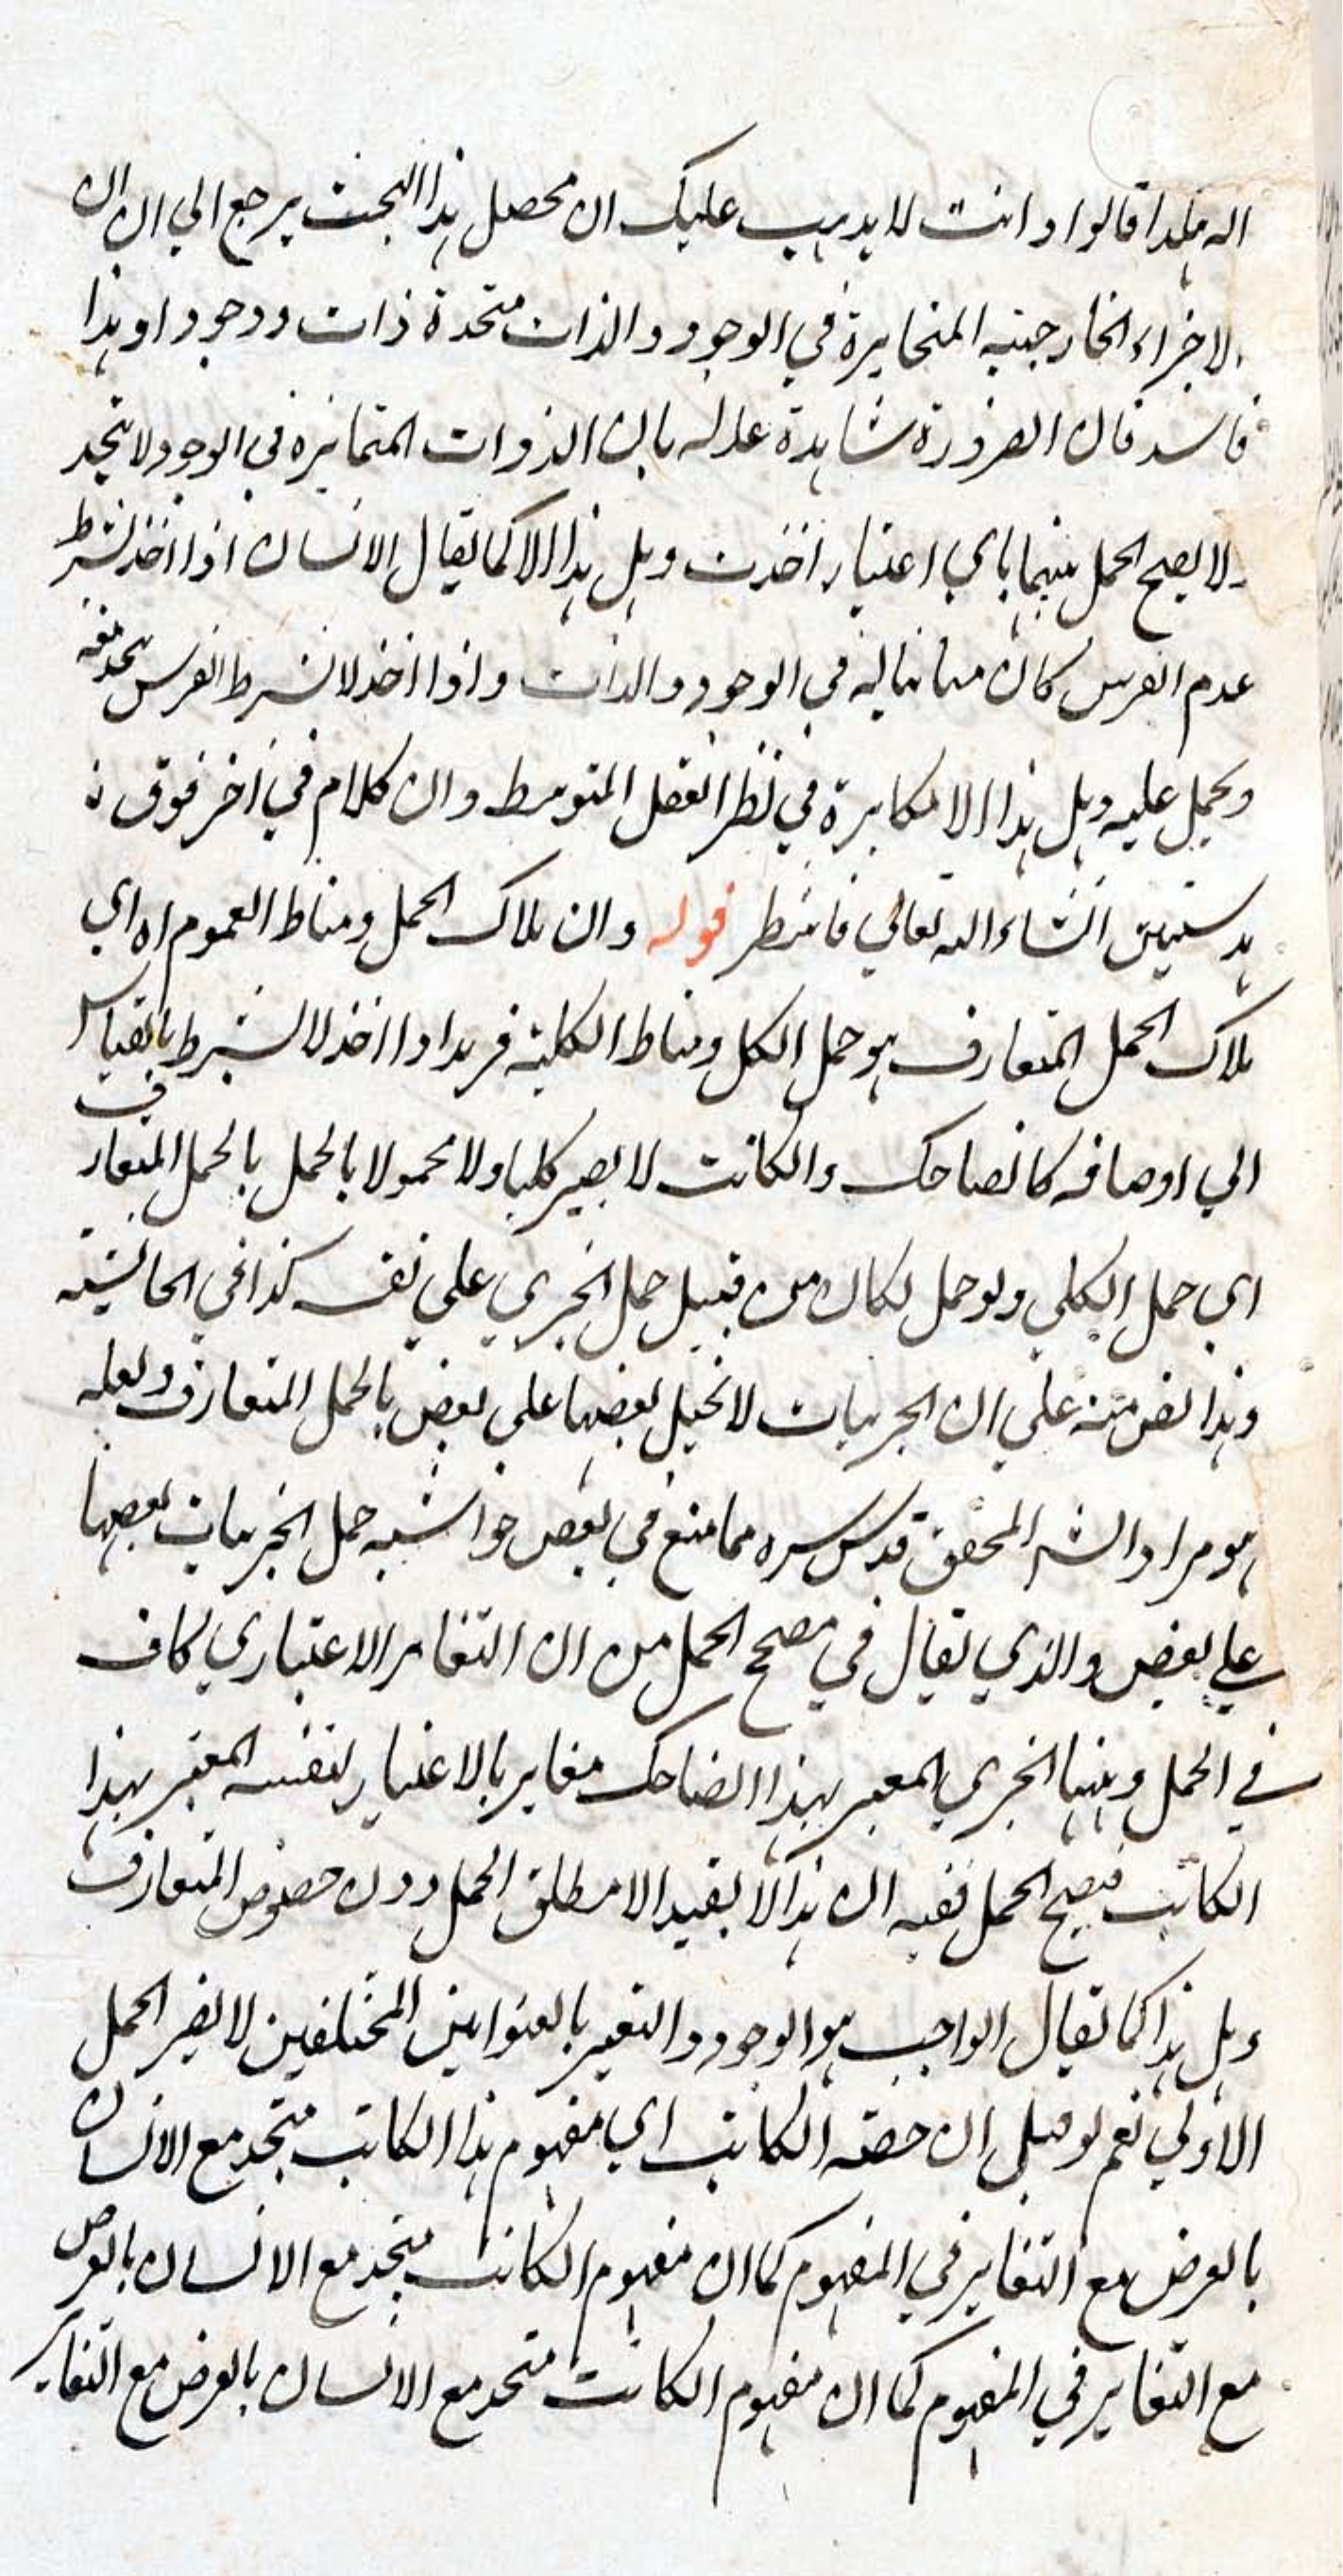 اله هكذا قالوا وانت لا يذهب عليك ان محصل هذا البحث يرجع الي ان
الاجزاء الخارجية المتغايرة في الوجود والذات متحدة ذات ووجودا وهذا
فاسد فان الضرورة شاهدة عدلة بان الذوات المتمايزة في الوجود لا تتحد
ولا يصح الحمل بينهما باي اعتبار اخذت وهل هذا الا كما يقال الانسان اذا اخذ بشرط
عدم الفرس كان مباينا له في الوجود والذات واذا اخذ لا بشرط الفرس يتحد معه
ويحمل عليه وهل هذا الا مكابرة في نظر العقل المتوسط وان كلام في اخر فوق
هذا ستبين انشاء الله تعالي فانتظر قوله وان ملاك الحمل ومناط العموم اه اي
ملاك الحمل المتعارف هو حمل الكل ومناط الكلية فزيد اذا اخذ لا بشرط بالقياس
الي اوصافه كالضاحك والكاتب لا يصير كليا ولا محمولا بالحمل بالحمل المتعارف
اي حمل الكلي ولو حمل لكان من قبيل حمل الجزئي علي نفسه كذا في الحاشية
وهذا نص منه علي ان الجزئيات لا تحمل بعضها علي بعض بالحمل المتعارف ولعله
هو مراد الشر المحقق قدس سره مما منع في بعض حواشيه حمل الجزئيات بعضها
علي بعض والذي يقال في مصحح الحمل من ان التغاير الاعتباري كاف
في الحمل وههنا الجزئي المعبر بهذا الضاحك مغاير بالاعتبار لنفسه المعبر بهذا
الكاتب فيصح الحمل ففيه ان هذا لا يفيد الا مطلق الحمل دون خصوص المتعارف
وهل هذا كما يقال الواجب هو الوجود والتعبير بالعنوانين المختلفين لا يضر الحمل
الاولي نعم لو قيل ان حصة الكاتب اي مفهوم هذا الكاتب متحد مع الانسان
بالعرض مع التغاير في المفهوم كما ان مفهوم الكاتب متحد مع الانسان بالعرض
مع التغاير في المفهوم كما ان مفهوم الكاتب متحد مع الانسان بالعرض مع التغاير